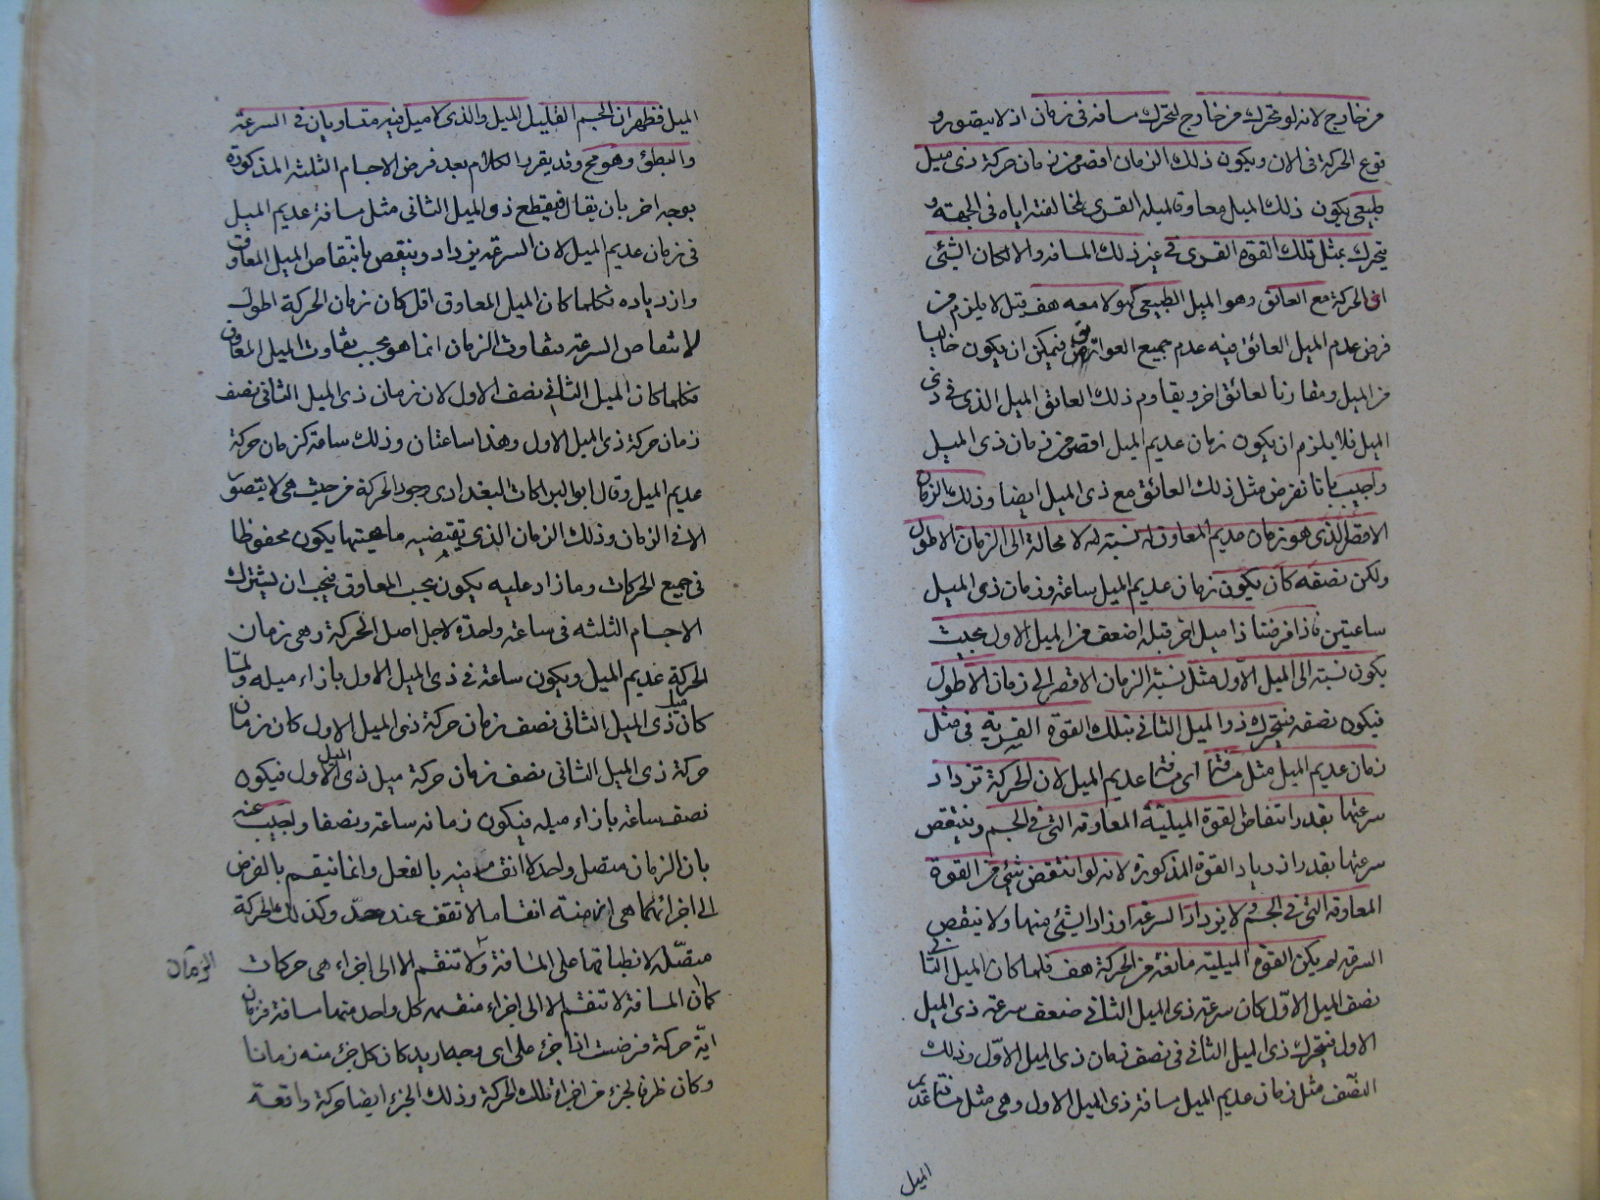 من خارج لانه لو تحرك من خارج لتحرك مسافة فى زمان اذ لا يتصور و
قوع الحركة فى الان ويكون ذلك الزمان اقصر من زمان حركة ذى ميل
طبيعى يكون ذلك الميل معاوقا لميله القسرى لمخالفته اياه فى الجهة و
يتحرك بمثل تلك القوة القسرى فى عين ذلك المسافة والا لكان الشئ
اى الحركة مع العائق وهو الميل الطبيعى كهو لا معه هف قيل لا يلزم من
فرض عدم الميل العائق فيه عدم جميع العوائق فيمكن ان يكون خاليا
من الميل ومقارنا لعائق اخر ويقاوم ذلك العائق الميل الذى فى ذى
الميل فلا يلزم ان يكون زمان عديم الميل اقصر من زمان ذى الميل
واجيب بانا نفرض مثل ذلك العائق مع ذى الميل ايضا وذلك الزمان
الاقصر الذى هو زمان عديم المعاوق له نسبة لا محالة الى الزمان الاطول
ولكن نصفه كان يكون زمان عديم الميل ساعة وزمان ذى الميل
ساعتين فاذا فرضنا ذا ميل اخر قبله اضعف من الميل الاول بحيث
يكون نسبته الى الميل الاول مثل نسبة الزمان الاقصر الى زمان الاطول
فيكون نصفه فيتحرك ذو الميل الثانى بتلك القوة القسرية فى مثل
زمان عديم الميل مثل مسافتها اى مسافة عديم الميل لان الحركة تزداد
سرعتها بقدر انتقاص القوة الميلية المعاوقة التى فى الجسم وينتقص
سرعتها بقدر ازدياد القوة المذكورة لانه لو انتقص شئ من القوة
المعاوقة التى فى الجسم ولا يزداد السرعة او زاد الشئ منها ولا ينتقص
السرعة لم يكن القوة الميلية مانعة من الحركة هف فلما كان الميل الثانى
نصف الميل الاول كان سرعة ذى الميل الثانى ضعف سرعة ذى الميل
الاول فيتحرك ذى الميل الثانى فى نصف زمان ذى الميل الاول وذلك
النصف مثل زمان عديم الميل مسافة ذى الميل الاول وهى مثل مسافة عديم
الميل
الميل فظهر ان الجسم القليل الميل والذى لا ميل فيه متساويان فى السرعة
والبطؤ وهو مح وقد يقرر الكلام بعد فرض الاجسام الثلثة المذكورة
بوجه اخر بان يقال فيقطع ذو الميل الثانى مثل مسافة عديم الميل
فى زمان عديم الميل لان السرعة يزداد وينتقص بانتقاص الميل المعاوق
وازدياده فكلما كان الميل المعاوق اقل كان زمان الحركة اطول
لانتقاص السرعة فتفاوت الزمان انما هو بحسب تفاوت الميل المعاوق
فكلما كان الميل الثانى نصف الاول لان زمان ذى الميل الثانى نصف
زمان حركة ذى الميل الاول وهذا ساعتان وذلك ساعة كزمان حركة
عديم الميل وقال ابو البركات البغدادى وجود الحركة من حيث هى لا يتصور
الا فى الزمان وذلك الزمان الذى يقتضيه ماهيتها يكون محفوظا
فى جميع الحركات وما زاد عليه يكون بحسب المعاوق فيجب ان يشترك
الاجسام الثلثه فى ساعة واحدة لاجل اصل الحركة وهى زمان
الحركة عديم الميل ويكون ساعة فى ذى الميل الاول بازاء ميله ولما
كان ميل ذى الميل الثانى نصف زمان حركة ذى الميل الاول كان زمان
حركة ذى الميل الثانى نصف زمان حركة ميل ذى الميل الاول فيكون
نصف ساعة بازاء ميله فيكون زمانه ساعة ونصفا واجيب عنه
بان الزمان متصل واحد لا انقسام فيه بالفعل وانما ينقسم بالفرض
الى اجزائها هى ازمنة انقساما لا تقف عند حدّ وكذلك الحركة
متصلة لانطباقها على المسافة ولا تنقسم الا الى اجزاء هى حركات
كما ان المسافة لا تنقسم الا الى اجزاء منقسمة كل واحد منها مسافة فزمان
اية حركة فرضت اذا جزء على اى وجه اريد كان كل جزء منه زمانا
وكان ظرفا لجزء من اجزاء تلك الحركة وذلك الجزء ايضا حركة واقعة
الزمان